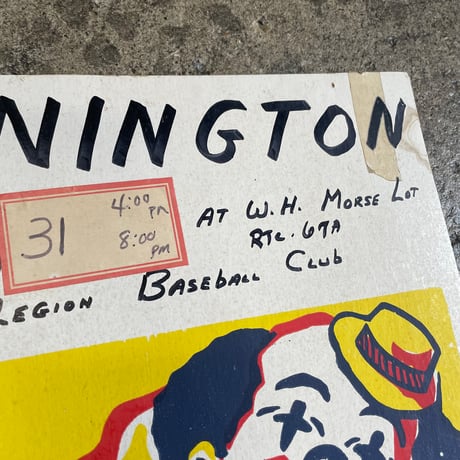 NINGTON
31 4:00 PM
8:00 PM
AT W.H. MORSE LOT
RTE. 67A
LEGION BASEBALL CLUB